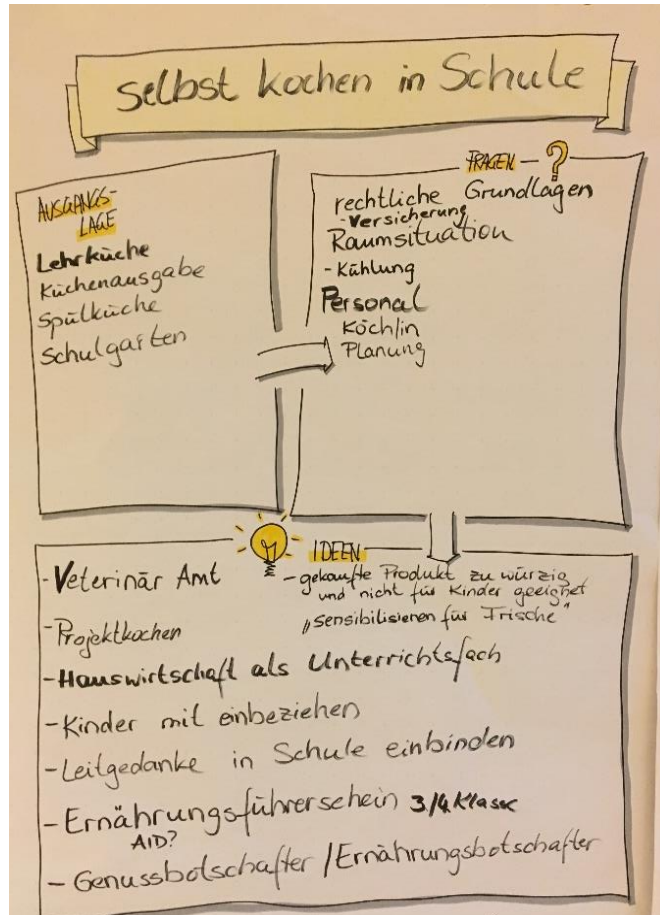 selbst kochen in Schule
AUSGANGS-
LAGE
Lehrküche
Küchenausgabe
Spülküche
Schulgarten
FRAGEN - ?
rechtliche Grundlagen
- Versicherung
Raumsituation
- Kühlung
Personal
Köch/in
Planung
IDEEN
- Veterinär Amt
- gekaufte Produkt zu würzig
und nicht für Kinder geeignet
"sensibilisieren für Frische"
- Projektkochen
- Hauswirtschaft als Unterrichtsfach
- Kinder mit einbeziehen
- Leitgedanke in Schule einbinden
- Ernährungsführerschein 3/4 Klasse
AID?
- Genussbotschafter / Ernährungsbotschafter